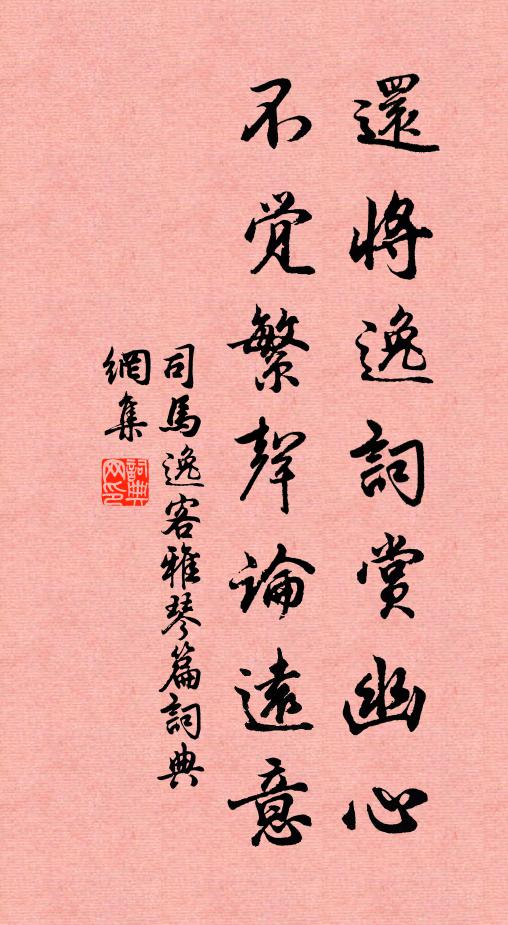 還將逸詞賞幽心
不覺繁聲論遠意
司馬逸客雅琴篇詞典
網集
詞典网印